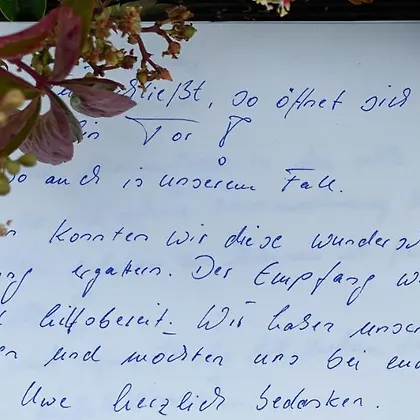 schließt, so öffnet sich
ein Tor!
so auch in unserem Fall.
konnten wir diese
ergattern. Der Empfang
hilfsbereit. Wir haben
und möchten uns bei
Uwe herzlich bedanken.